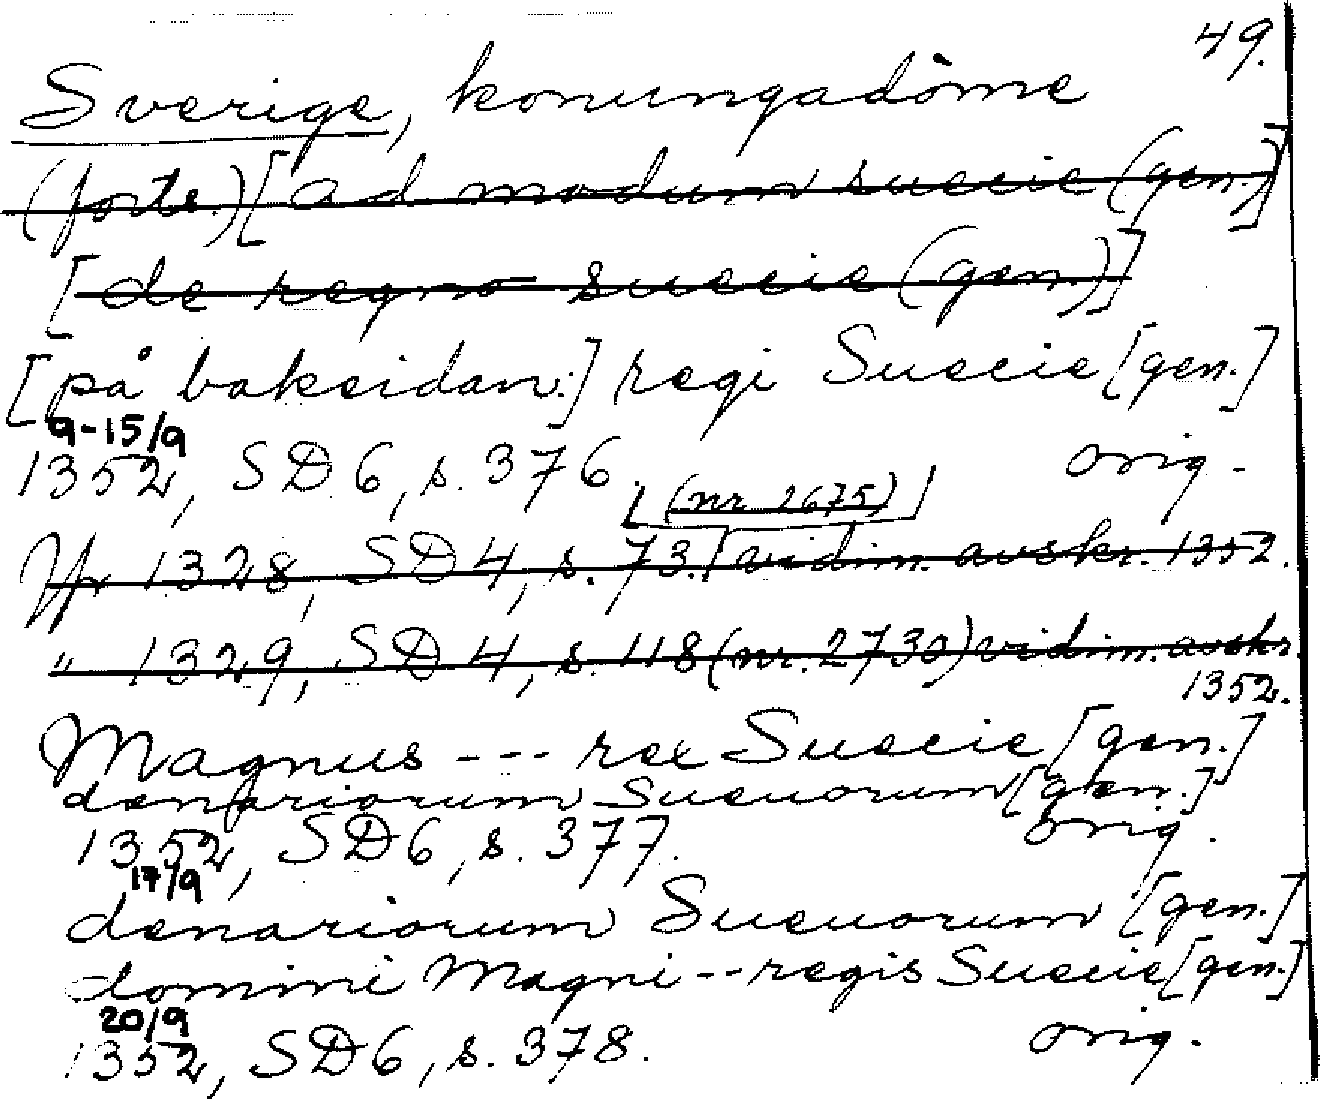 49.
Sverige, konungadöme
(forts.) [ad modum suecie (gen.)]
[de regno suecie (gen.)]
[på baksidan:] regi Suecie [gen.]
9-15/9
1352, SD 6, s. 376. orig.
[(nr 2675)]
Jfr 1328, SD 4, s. 73. vidim. avskr. 1352.
" 1329, SD 4, s. 118 (nr. 2730) vidim. avskr.
1352.
Magnus --- rex Suecie [gen.]
denariorum Sueuorum [gen.]
1352, SD 6, s. 377. orig.
17/9
denariorum Sueuorum [gen.]
domini Magni -- regis Suecie [gen.]
20/9
1352, SD 6, s. 378. orig.